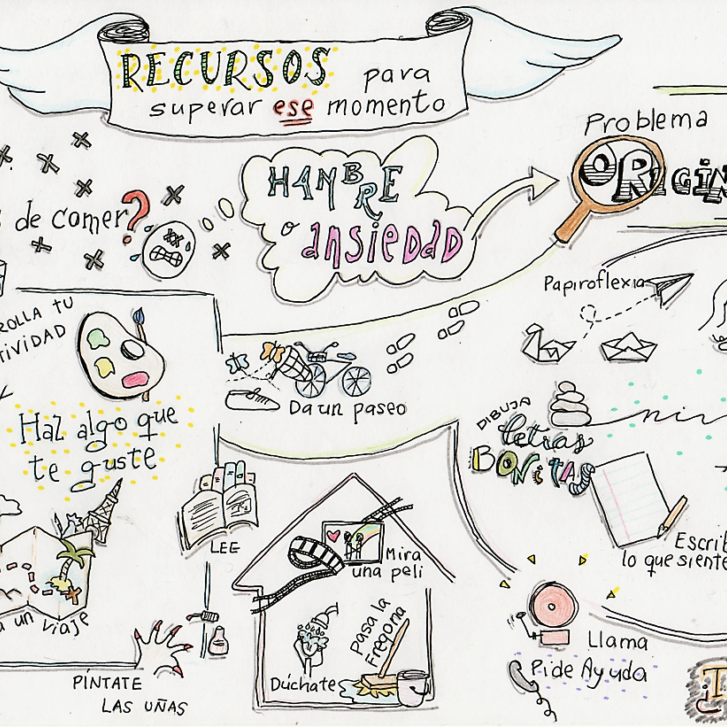 RECURSOS para
superar ese momento
Problema
ORIGIN
de comer?
HAMBRE
o ansiedad
Papiroflexia
ROLLA TU
TIVIDAD
Da un paseo
DIBUJA
letras
BONitAS
Haz algo que
te guste
LEE
Mira
una peli
Escrib
lo que siente
un viaje
Dúchate
Pasa la
Fregona
Llama
Pide Ayuda
PÍNTATE
LAS UÑAS